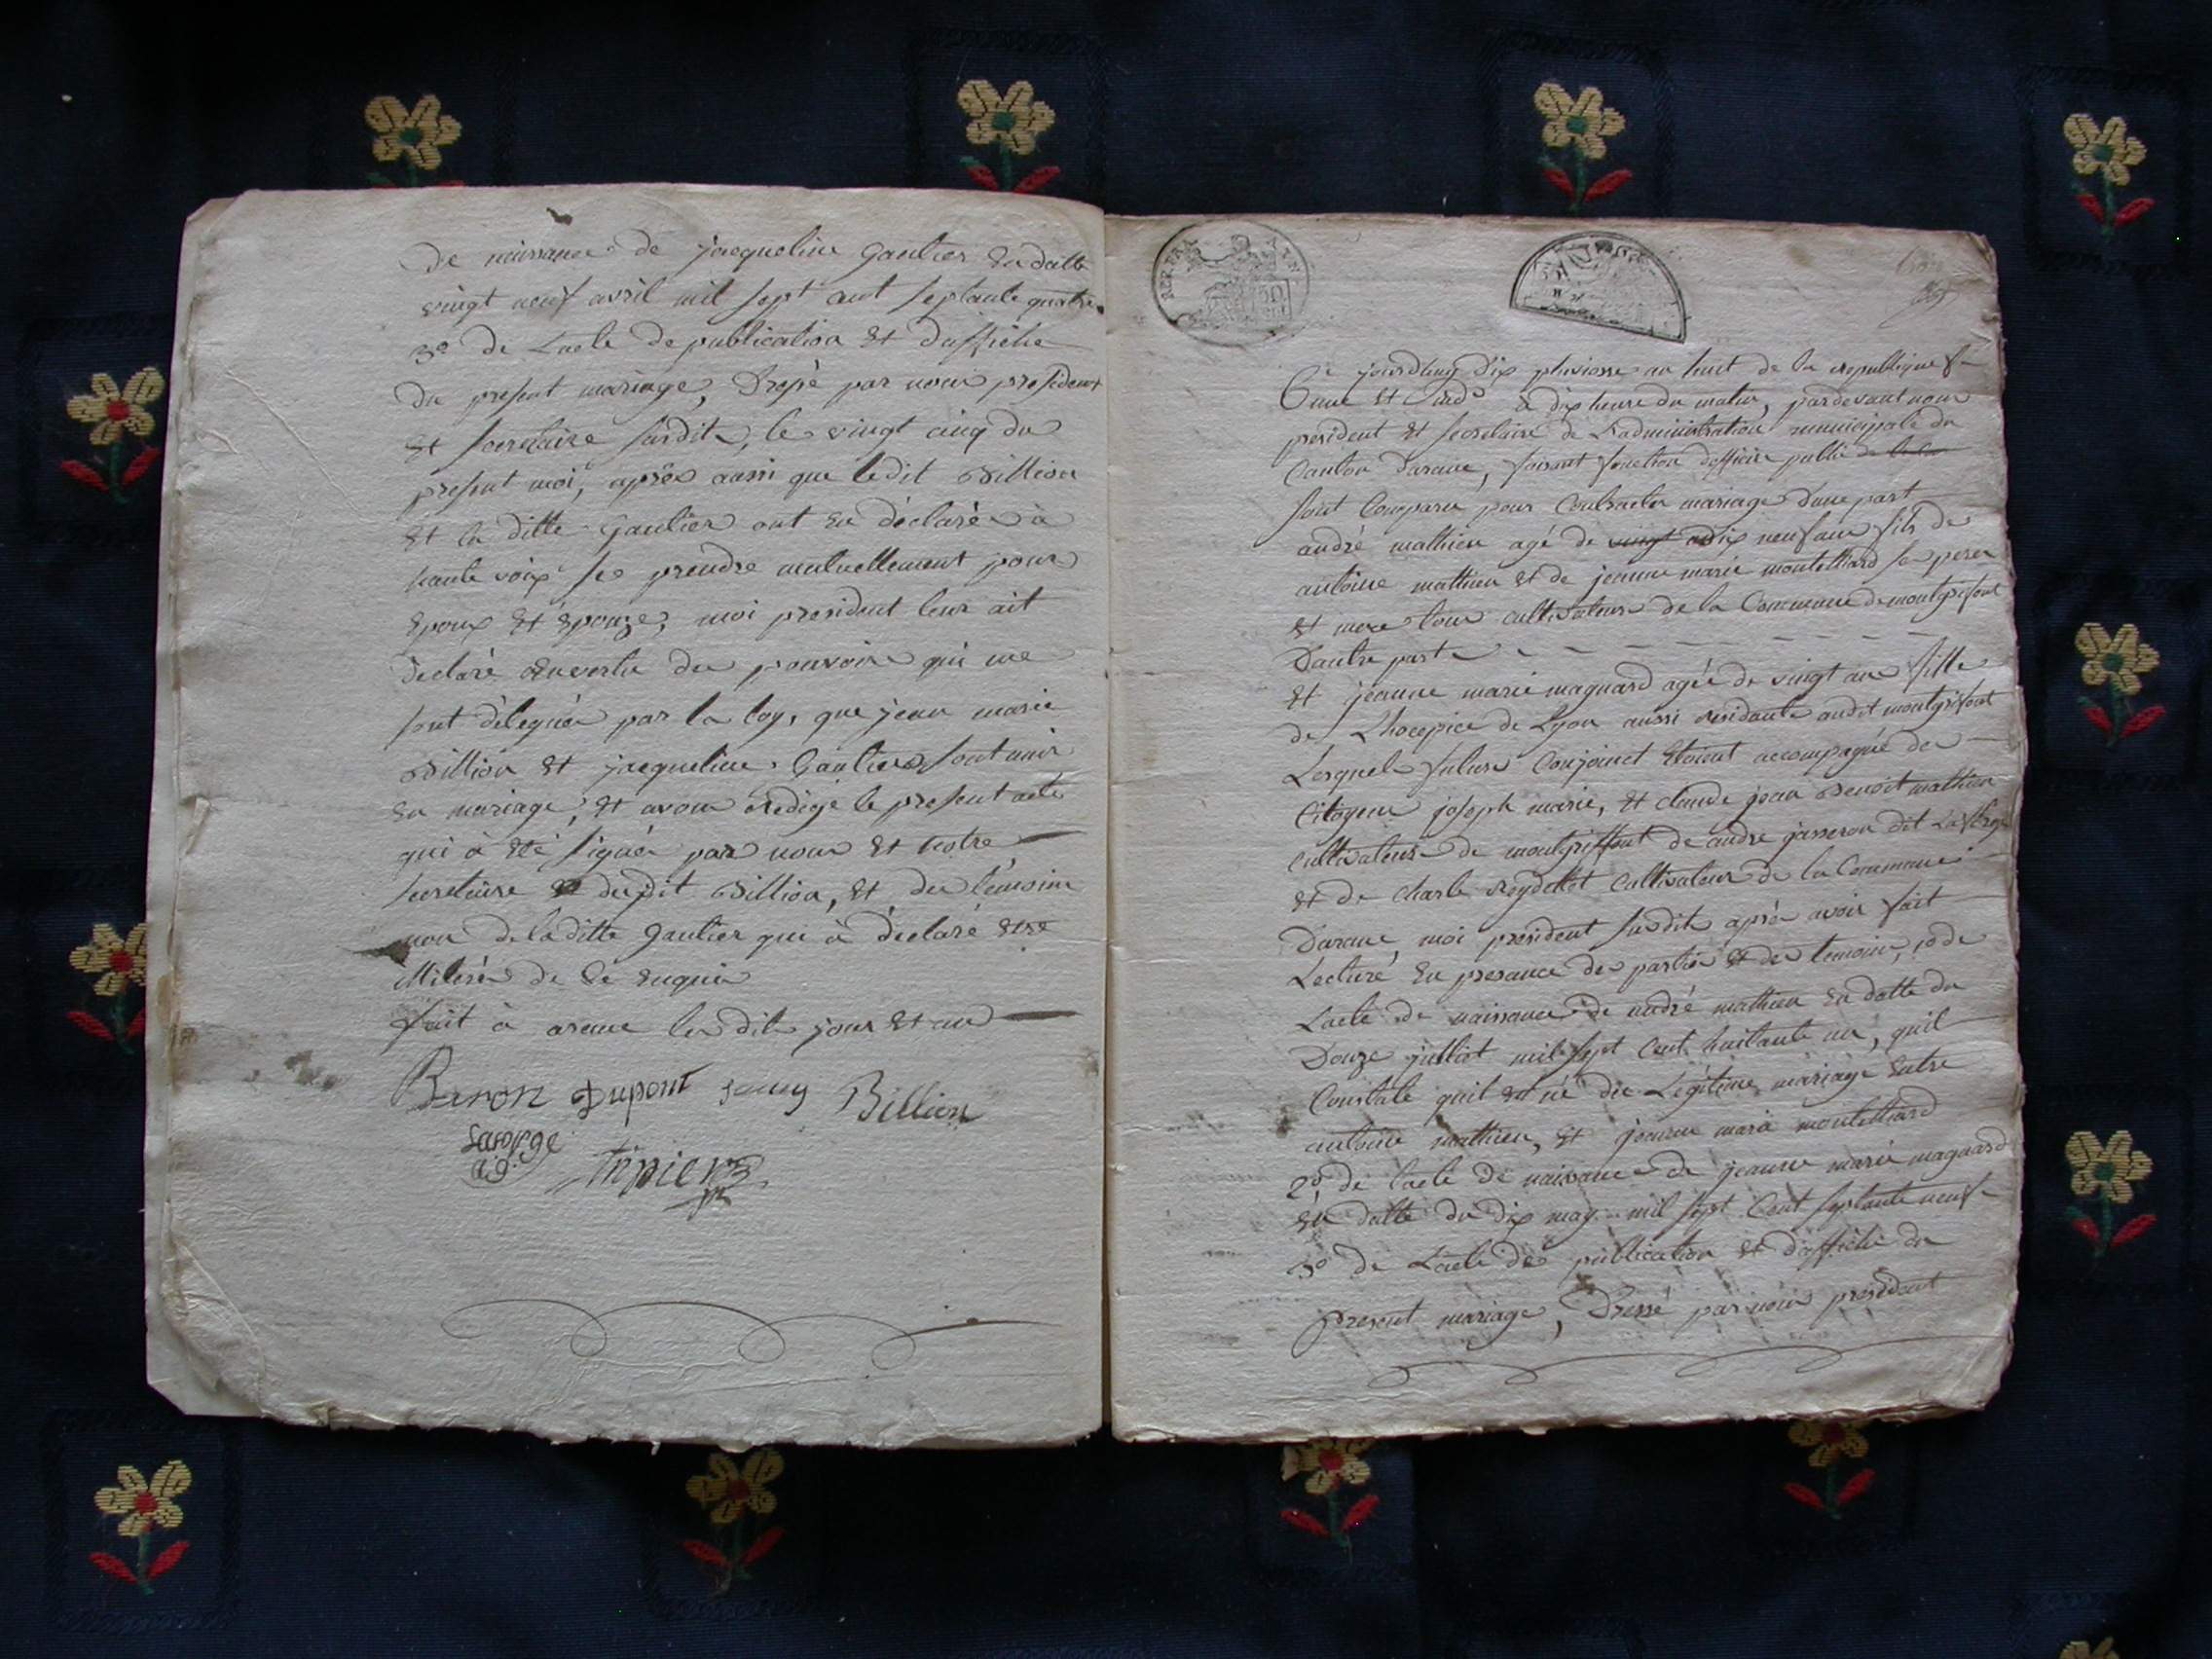 de naissance de jacqueline gaultier en datte
vingt neuf avril mil sept cent septante quatre
3° de Lacte de publication et daffiche
du present mariage, Dressé par nous president
et secretaire susdits, le vingt cinq du
present moi, après aussi que ledit Billion
et la ditte gaultier ont eu déclaré à
haute voix se prendre mutuellement pour
Epoux et épouze, moi president leur ait
declaré en vertu des pouvoirs qui me
sont délegués par la loy, que jean marie
Billion et jacqueline Gaultier sont unis
en mariage, et avons redigé le present acte
qui à été signé par nous et notre
secretaire dudit Billion, et des témoins
non de laditte gaultier qui à déclaré etre
illiterée de ce enquis
fait à arane les dits jour et an
Baron Dupont Billion
Savarge
Tripier
REP. FRA
50
Ce jourdhuy dix pluviosse an huit de la republique f
une et ind à dix heure du matin, pardevant nous
president et secretaire de Ladministration municipale du
canton darane, faisant fonction dofficier public
sont comparu pour contracter mariage dune part
andré mathieu agé de vingt dix neuf ans fils de
antoine mathieu et de jeanne marie montilliard se peres
et mere tous cultivateurs de la Commune de montgrifont
Dautre part
et jeanne marie magnard agée de vingt ans fille
de Lhocepice de Lyon aussi residante audit montgrifont
Lesquels futurs Conjoinct etoient accompagné des
Citoyens joseph marie, et claude jean Benoit mathieu
cultivateurs de montgriffont de andre jasseron dit
et de charle reydellet cultivateur de la Commune
Darane, moi president susdit après avoir fait
Lecture en presance des parties et des temoins, 1° de
Lacte de naissance de andré mathieu en datte du
Douze julliet mil sept cent huitante un, quil
Constate quil est né de Légitime mariage Entre
antoine mathieu, et jeanne marie montilliard
2° de lacte de naissance de jeanne marie magnard
en datte du dix may mil sept Cent septante neuf
3° de Lacte de publication et daffiche du
present mariage, Dressé par nous président